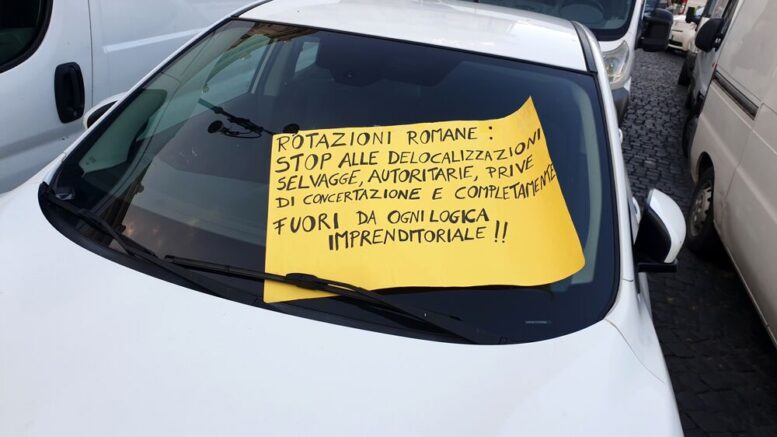 ROTAZIONI ROMANE :
STOP ALLE DELOCALIZZAZIONI
SELVAGGE, AUTORITARIE, PRIVE
DI CONCERTAZIONE E COMPLETAMENTE
FUORI DA OGNI LOGICA
IMPRENDITORIALE !!